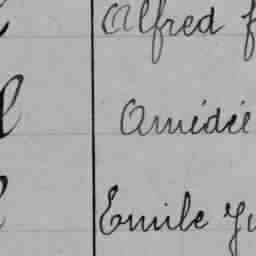 Alfred
Amédée
Emile